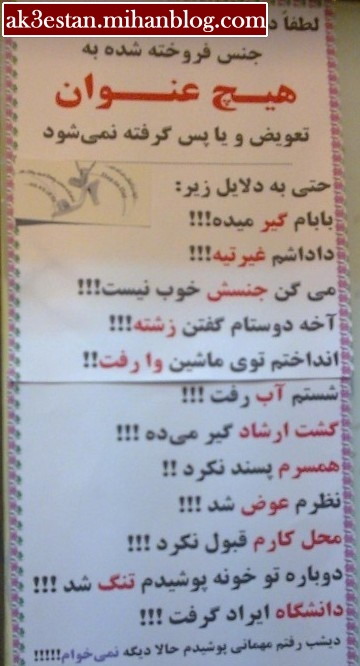 ak3estan.mihanblog.com
لطفاً
جنس فروخته شده به
هیچ عنوان
تعویض و یا پس گرفته نمی‌شود
حتی به دلایل زیر:
بابام گیر میده!!!
داداشم غیرتیه!!!
می گن جنسش خوب نیست!!!
آخه دوستام گفتن زشته!!!
انداختم توی ماشین وا رفت!!
شستم آب رفت !!!
گشت ارشاد گیر می‌ده !!!
همسرم پسند نکرد !!
نظرم عوض شد !!!
محل کارم قبول نکرد !!!
دوباره تو خونه پوشیدم تنگ شد !!!
دانشگاه ایراد گرفت !!!
دیشب رفتم مهمانی پوشیدم حالا دیگه نمی‌خوام!!!!!!